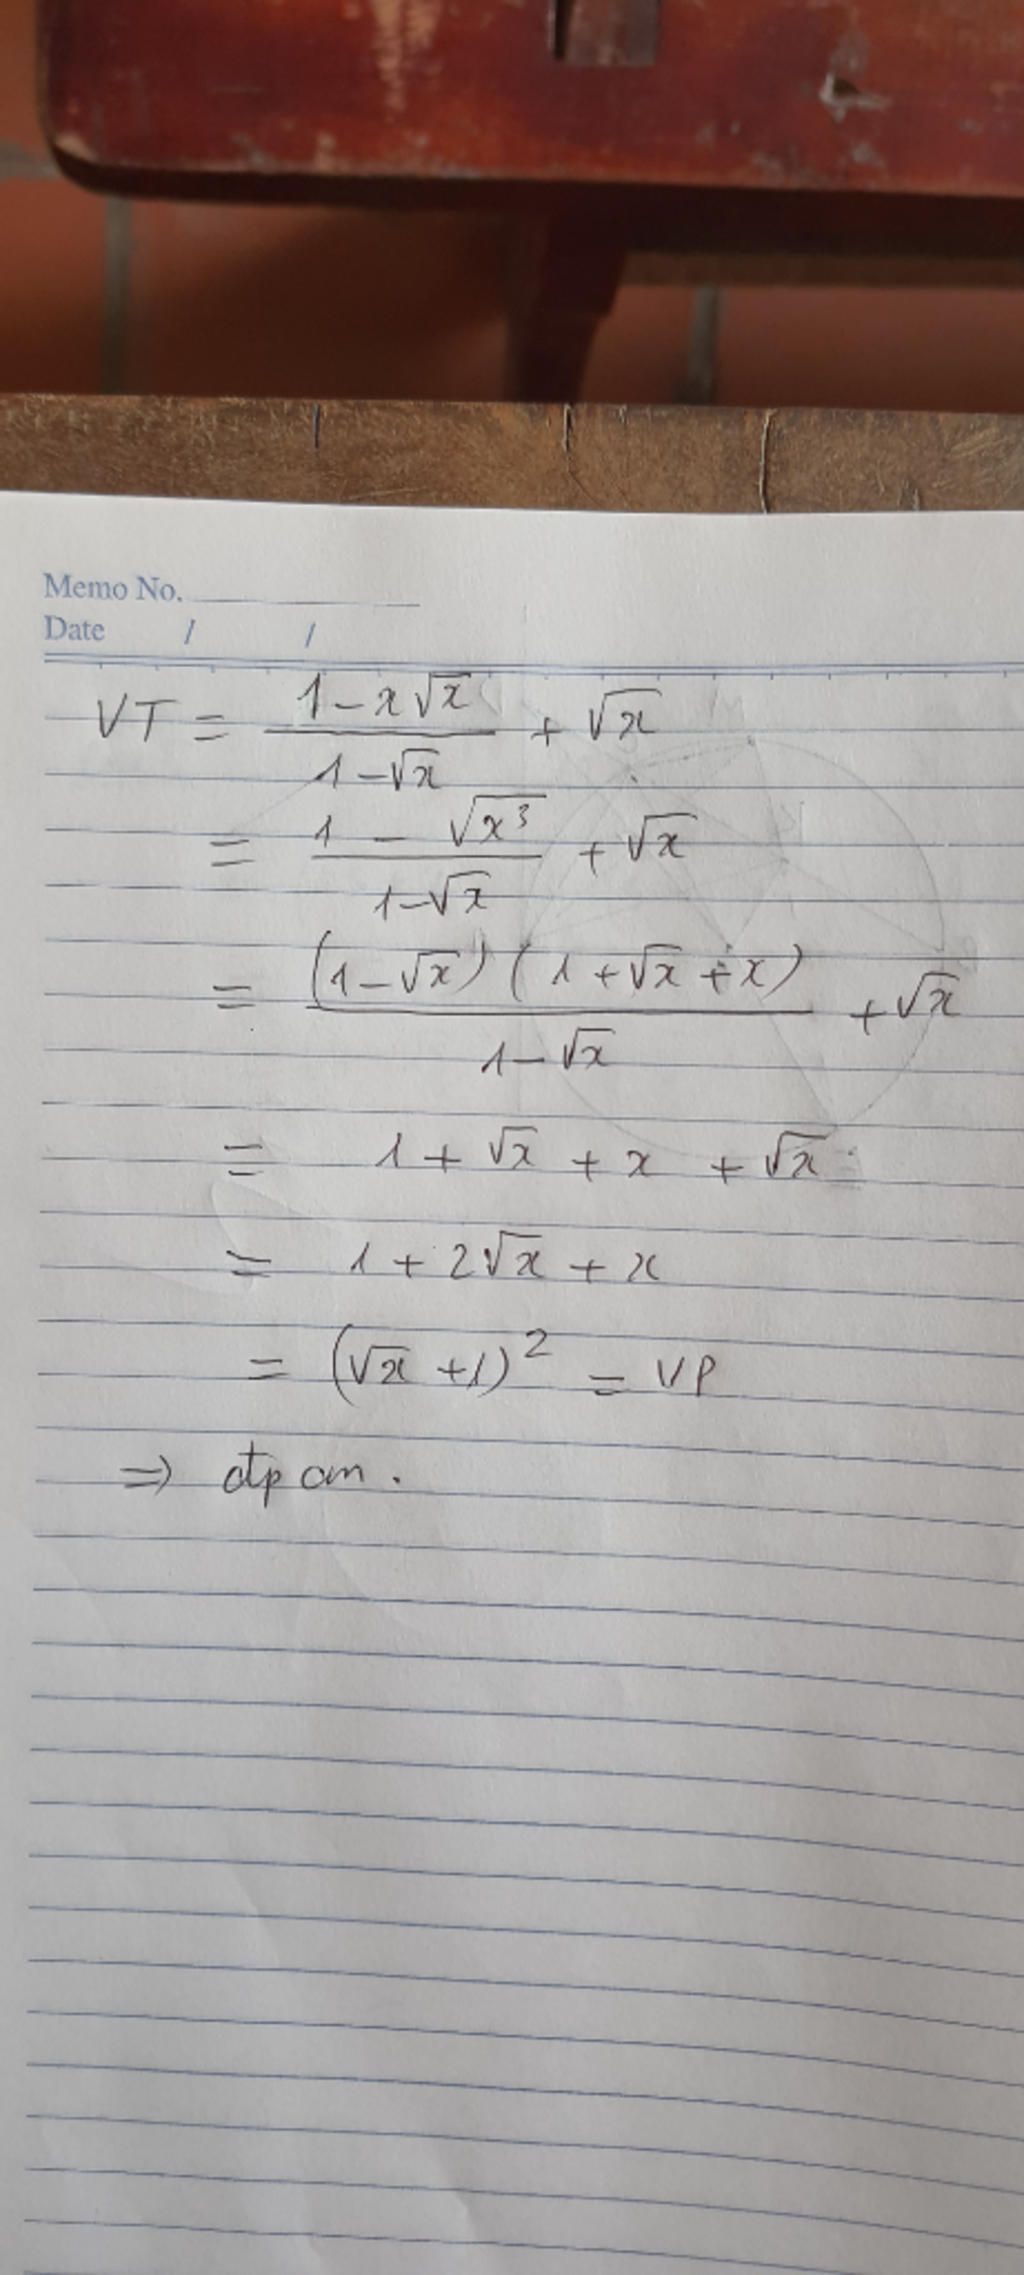 Memo No.
Date / /
VT = \frac{1-x\sqrt{x}}{1-\sqrt{x}} + \sqrt{x}
= \frac{1-\sqrt{x^3}}{1-\sqrt{x}} + \sqrt{x}
= \frac{(1-\sqrt{x})(1+\sqrt{x}+x)}{1-\sqrt{x}} + \sqrt{x}
= 1 + \sqrt{x} + x + \sqrt{x}
= 1 + 2\sqrt{x} + x
= (\sqrt{x}+1)^2 = VP
=> đpcm.